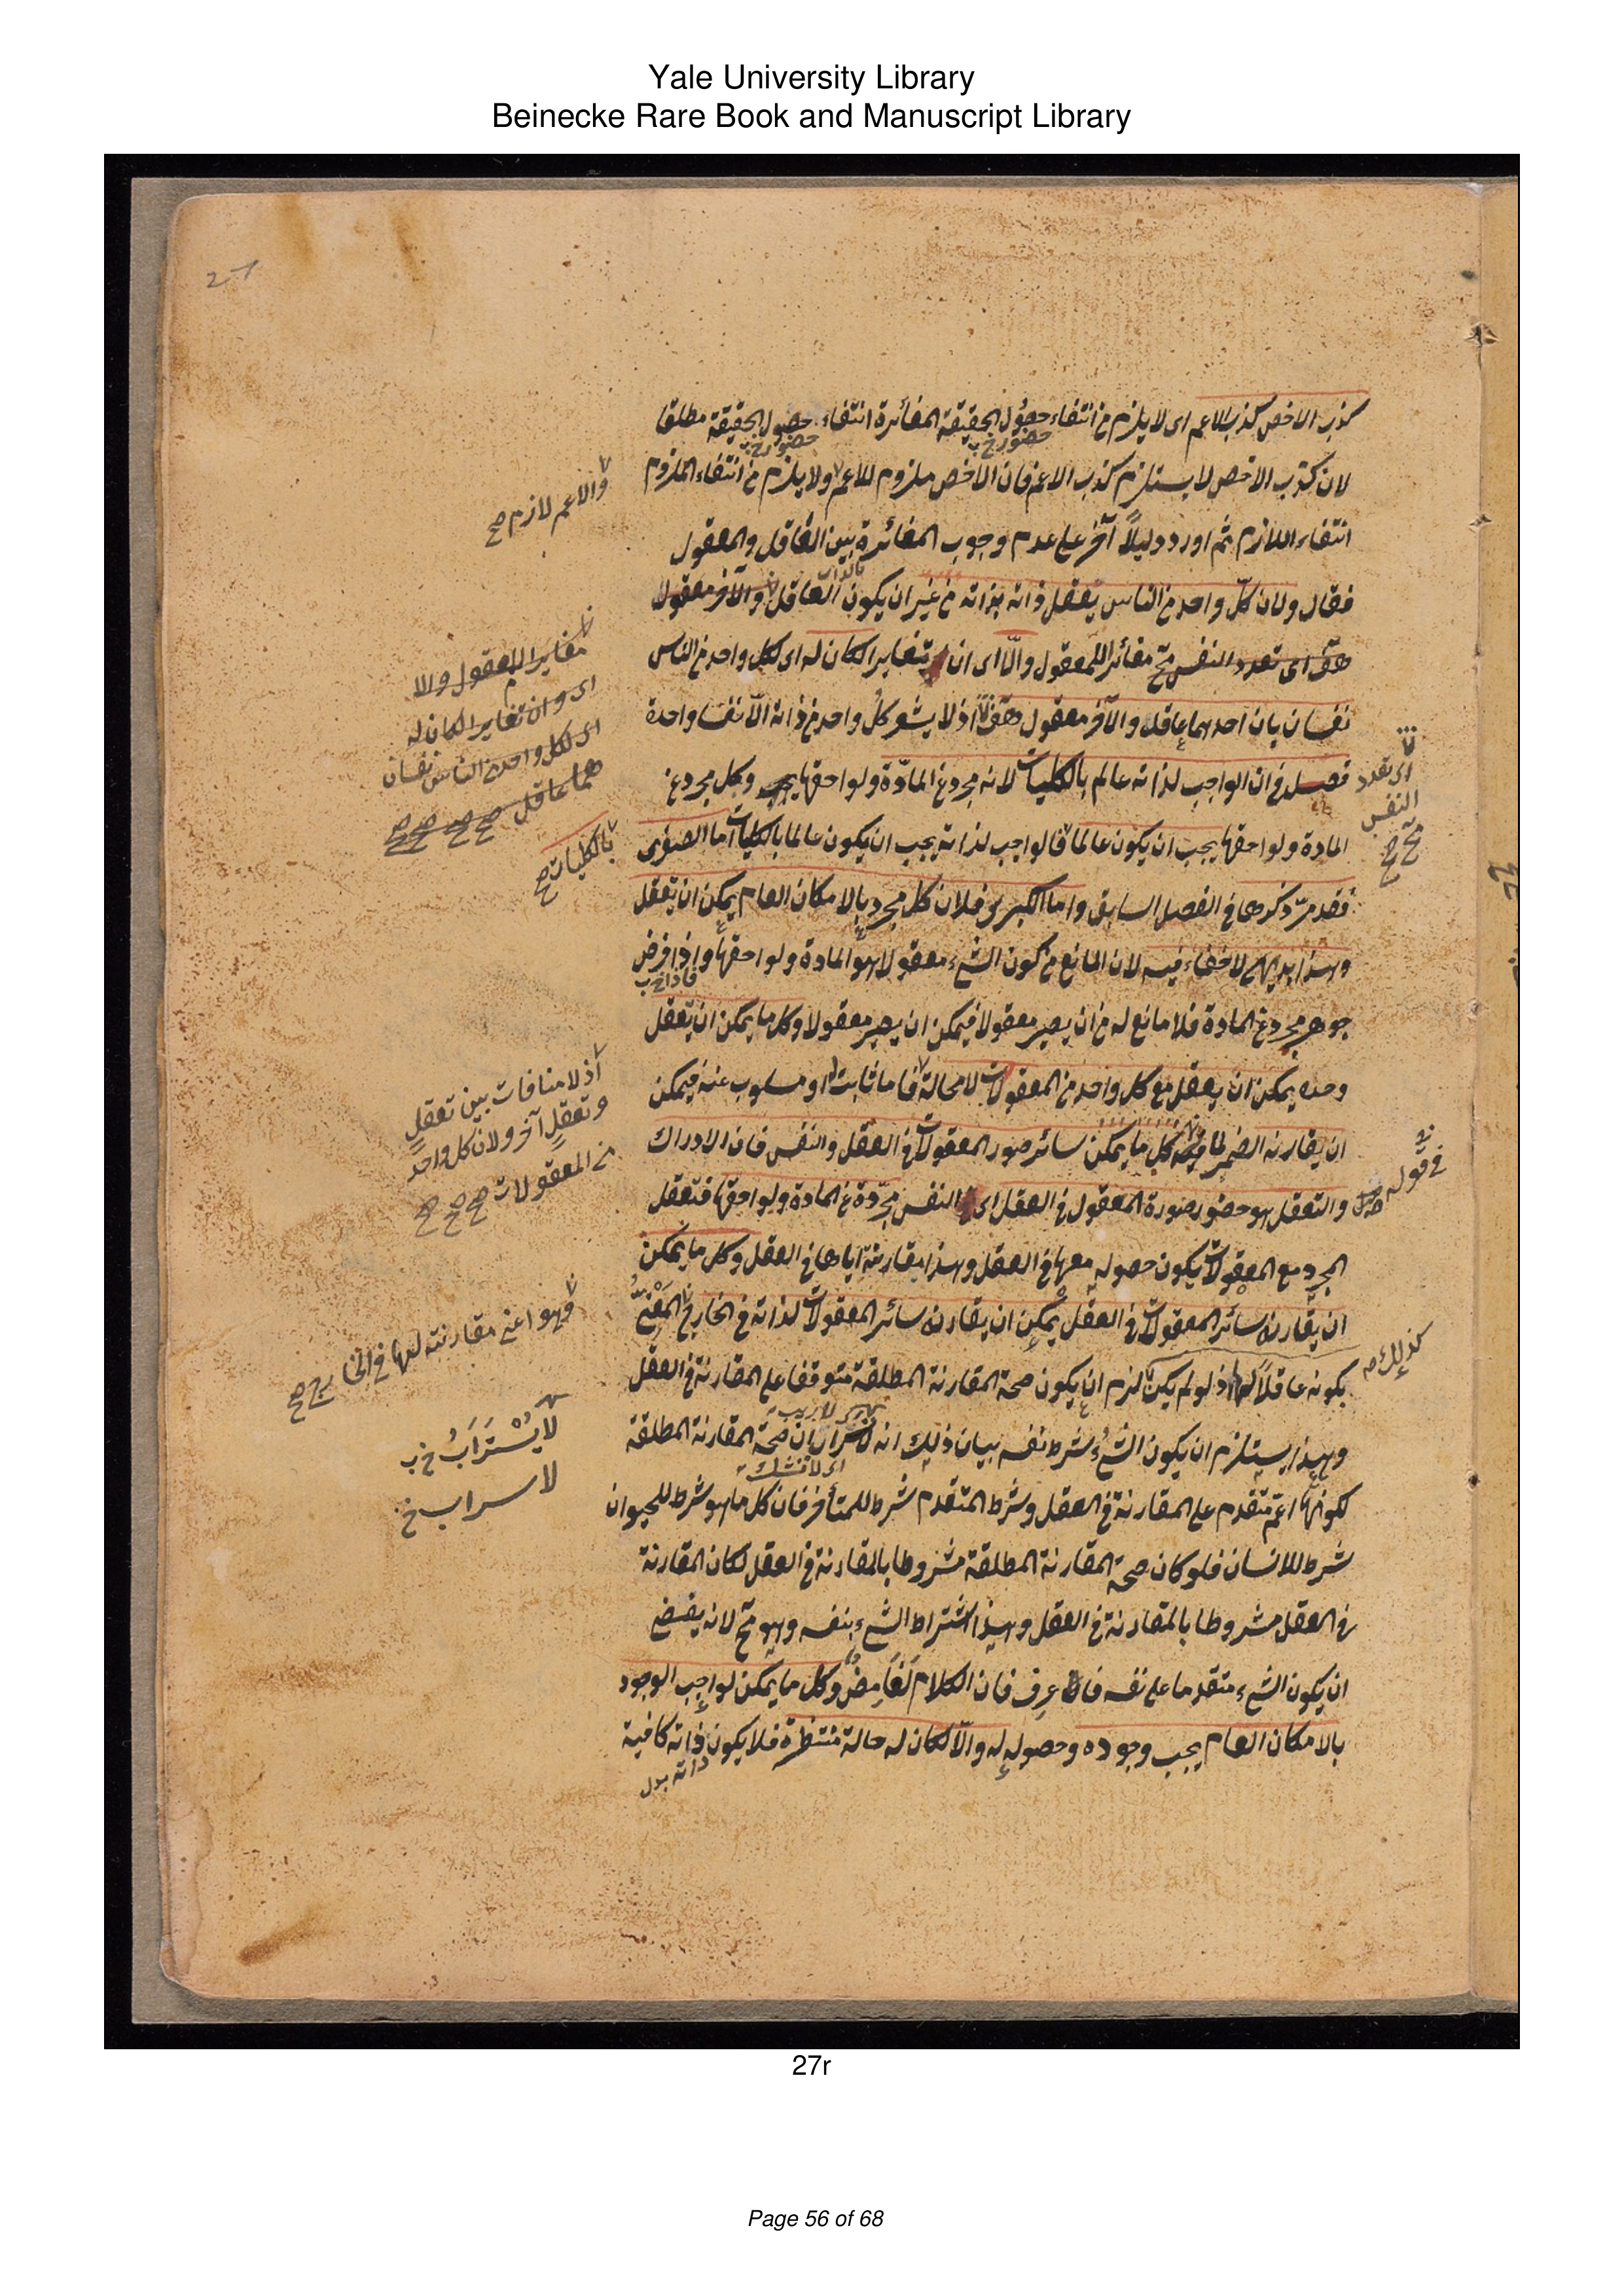 Yale University Library
Beinecke Rare Book and Manuscript Library
27
كذب الاخص كذب الاعم اى لا يلزم من انتفاء حصول الحقيقة المغائرة انتفاء حصول الحقيقة مطلقا
حضور خ ب
حضور خ ب
لان كذب الاخص لا يستلزم كذب الاعم فان الاخص ملزوم للاعم ولا يلزم من انتفاء الملزوم
والاعم لازم صح
انتفاء اللازم ثم اورد دليلاً آخر على عدم وجوب المغائرة بين العاقل والمعقول
فقال ولان كلّ واحد من الناس يعقل ذاته بذاته من غير ان يكون العاقل والآخر معقولا
بالذات
مغايرا للمعقول والا
اى وان تغايرا لكان له
اى لكل واحد من الناس نفسان
هما عاقل صح صح صح
هف اى تعدد النفس مح مغائر للمعقول والّا اى ان تغايرا لكان له اى لكل واحد من الناس
نفسان بان احدهما عاقل والآخر معقول هف اذ لا يشعر كل واحد من ذاته الّا نفسا واحدة
اى تعدد
النفس
مح صح
فصل فى ان الواجب لذاته عالم بالكليات لانه مجرد عن المادّة ولواحقها وكل مجرد عن
المادة ولواحقها يجب ان يكون عالما فالواجب لذاته يجب ان يكون عالما بالكليات اما الصغرى
بالكليات صح
فقد مرّ ذكرها فى الفصل السابق واما الكبرى فلان كل مجرد بالامكان العام يمكن ان يعقل
وهذا بديهى لا خفاء فيه لان المانع من كون الشىء معقولا هو المادة ولواحقها واذا فرض
فاذا خ ب
جوهر مجرد عن المادة فلا مانع له من ان يصير معقولا فيمكن ان يصير معقولا وكل ما يمكن ان يعقل
وحده يمكن ان يعقل مع كل واحد من المعقولات لا محالة فاما ثابت او مسلوب عنه فيمكن
اذ لا منافات بين تعقل
وتعقل آخر ولان كل واحد
من المعقولات صح صح صح
ان يقارنه الضمير لما فى كل ما يمكن سائر صور المعقولات فى العقل والنفس فان الادراك
فى قوله
والتعقل هو حضور صورة المعقول فى العقل اى النفس مجرّدة عن المادة ولواحقها فتعقل
المجرد مع المعقولات يكون حصوله معها فى العقل وهذا مقارنته اياها فى العقل وكل ما يمكن
ان يقارنه سائر المعقولات فى العقل يمكن ان يقارنه سائر المعقولات لذاته فى الخارج
فهو اعنى مقارنته لها فى الخارج صح
كذلك صح
بكونه عاقلاً لها اذ لو لم يكن لزم ان يكون صحة المقارنة المطلقة متوقفا على المقارنة فى العقل
وهذا يستلزم ان يكون الشىء شرط نفسه بيان ذلك انه ان صحة المقارنة المطلقة
لا يُسْتَرَابُ خ ب
اى لا نشك
لكونها اعم متقدم على المقارنة فى العقل وشرط المتقدم شرط للمتأخر فان كل ما هو شرط للحيوان
شرط للانسان فلو كان صحة المقارنة المطلقة مشروطا بالمقارنة فى العقل لكان المقارنة
فى العقل مشروطا بالمقارنة فى العقل وهذا اشتراط الشىء بنفسه وهو مح لانه يفضى
ان يكون الشىء متقدما على نفسه عرف فان الكلام لغامض وكل ما يمكن لواجب الوجود
بالامكان العام يجب وجوده وحصوله له والّا لكان له حالة منتظرة فلا يكون ذاته كافية
ذاته بدل
27r
Page 56 of 68